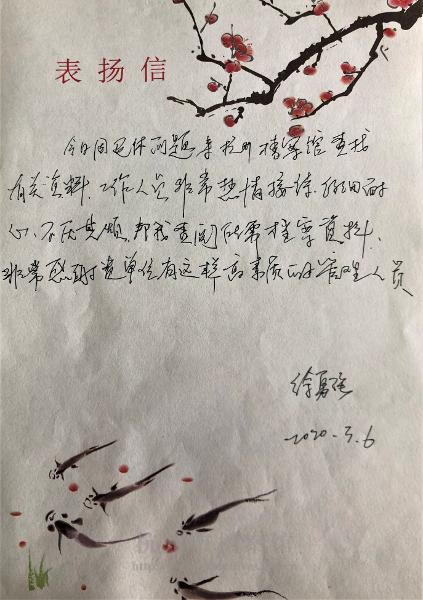 表扬信
今日因个体问题来杭州档案馆查找
有关资料，工作人员非常热情接待，仔细耐
心，不厌其烦，帮我查阅所需档案资料，
非常感谢贵单位有这样高素质的管理人员
徐勇强
2020.3.6